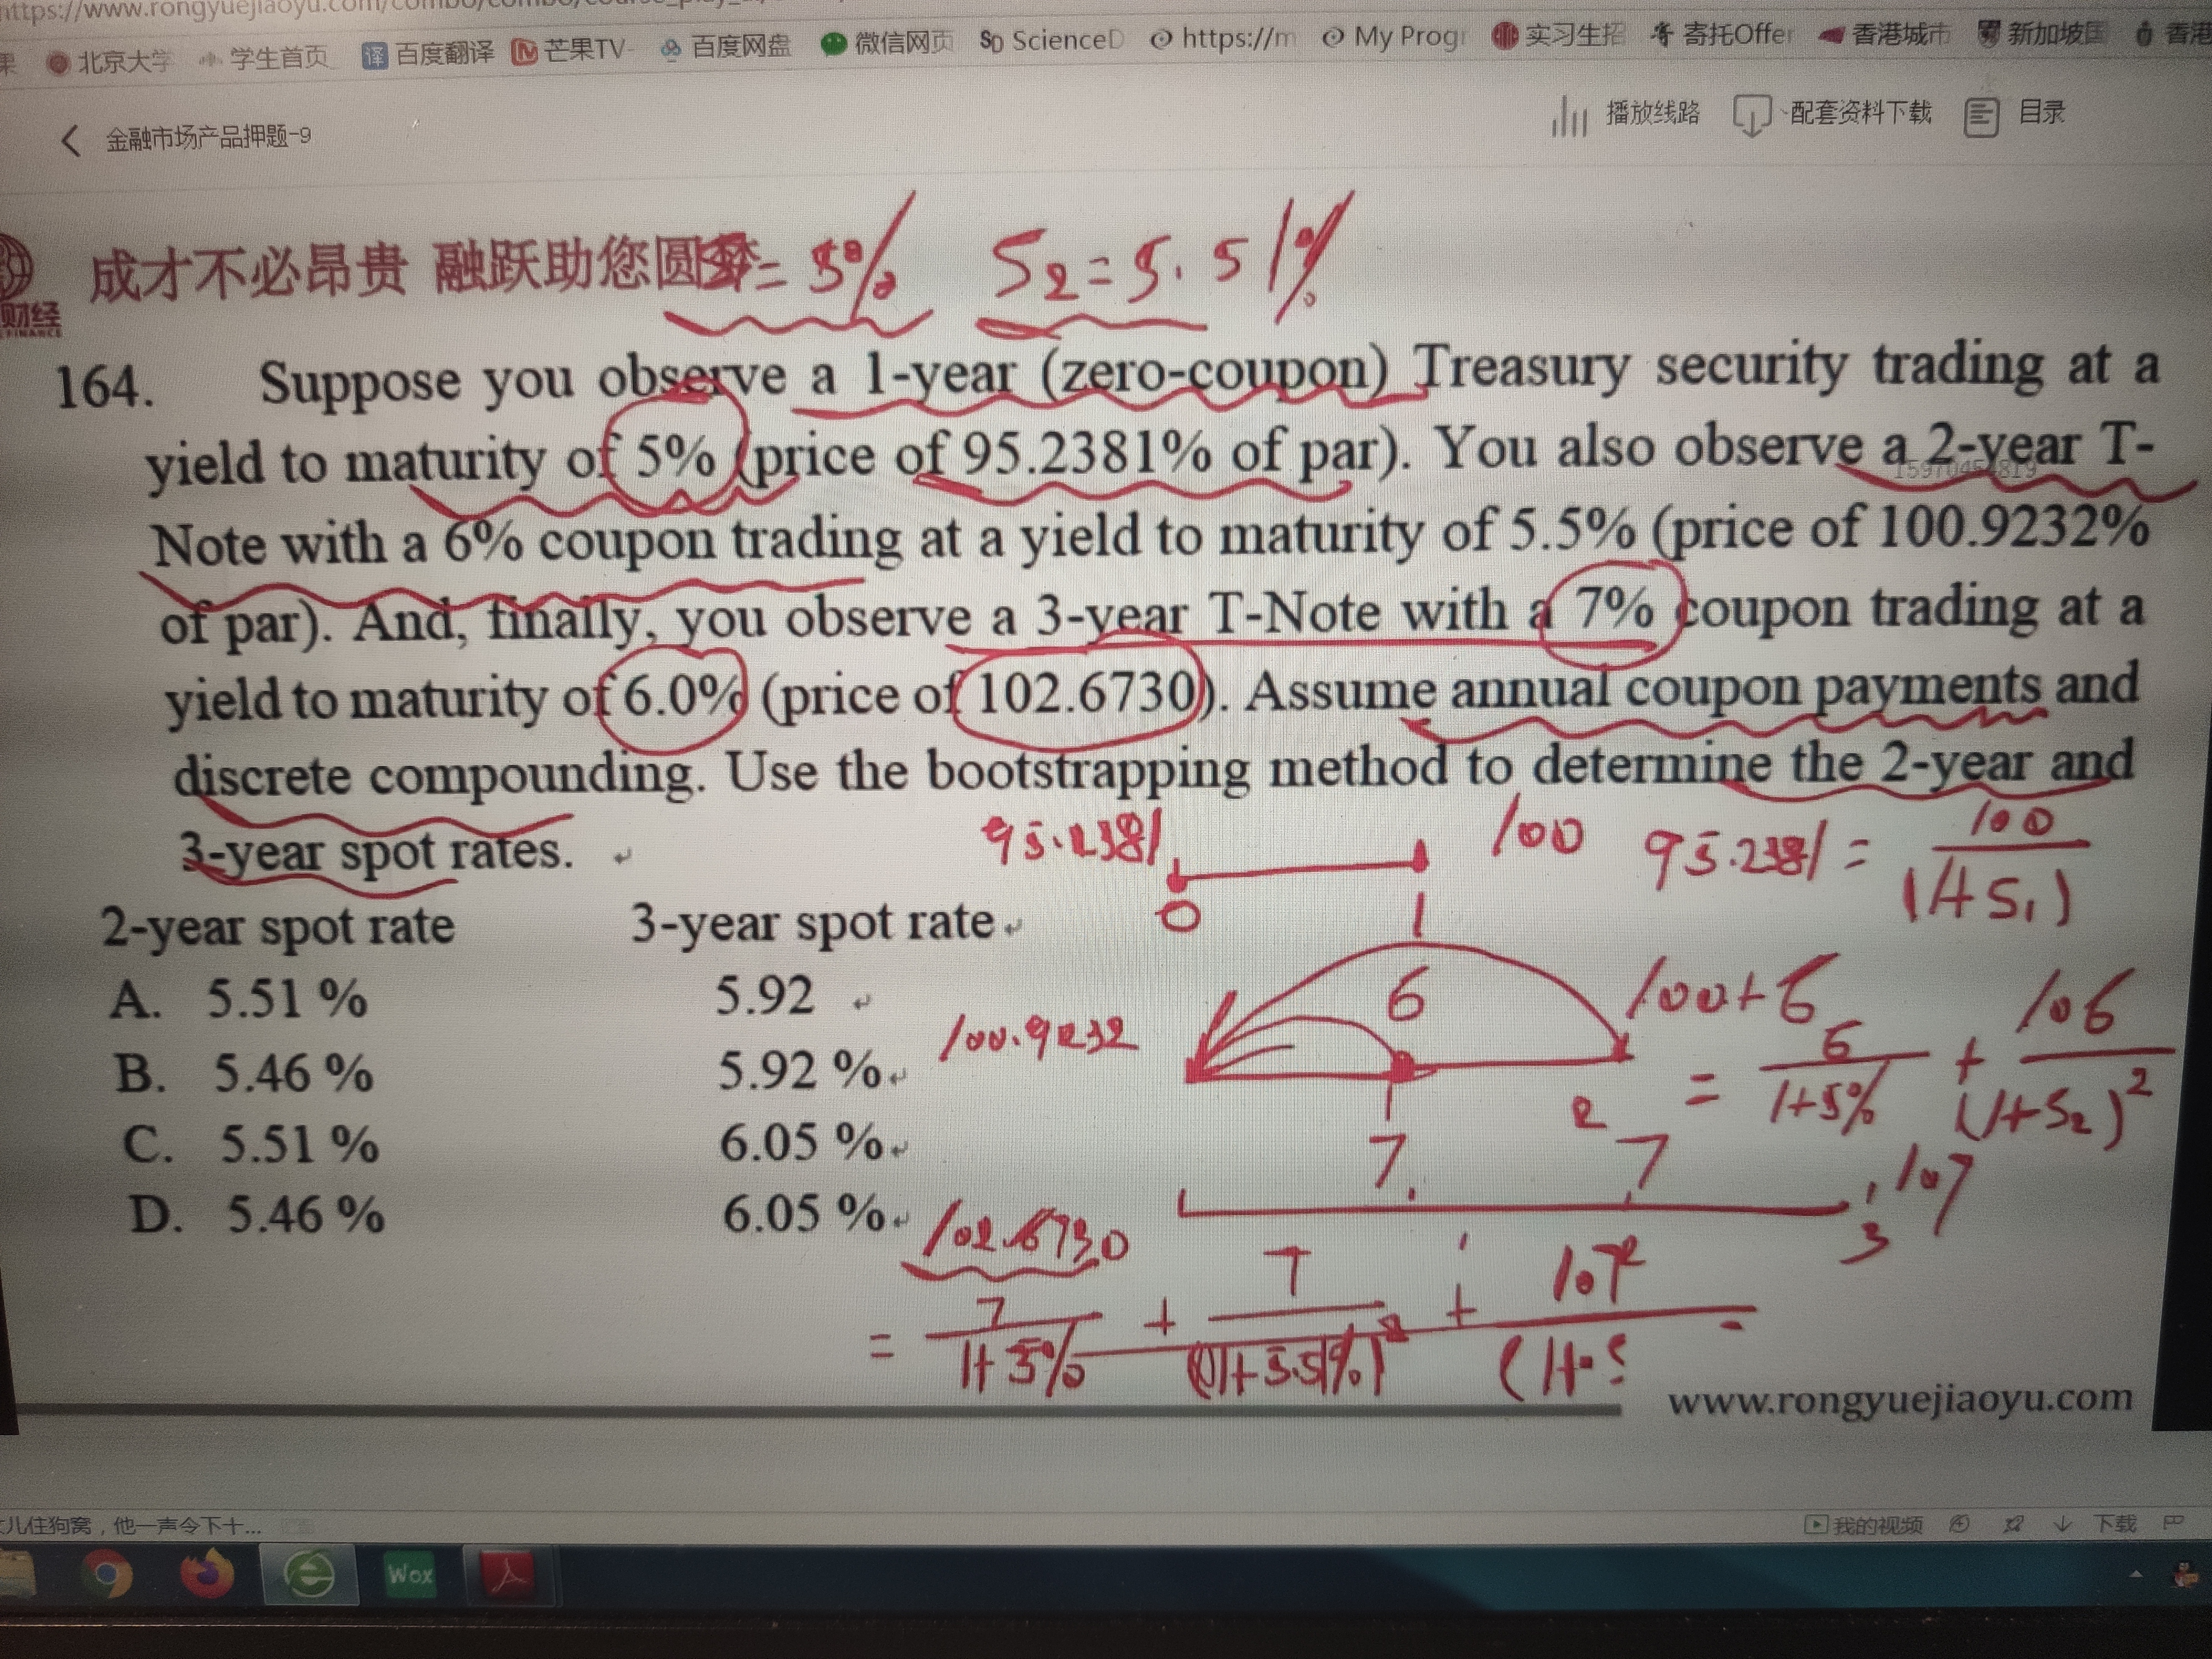 https://www.rongyuejiaoyu.com/combo/combo/course_play_
北京大学 学生首页 译 百度翻译 芒果TV- 百度网盘 微信网页 SD ScienceD https://m My Progr 实习生招 寄托Offer 香港城市 新加坡国 香港
金融市场产品押题-9 播放线路 配套资料下载 目录
财经
FINANCE
成才不必昂贵 融跃助您圆梦
= 5% S2 = 5.51%
164. Suppose you observe a 1-year (zero-coupon) Treasury security trading at a
yield to maturity of 5% (price of 95.2381% of par). You also observe a 2-year T-
Note with a 6% coupon trading at a yield to maturity of 5.5% (price of 100.9232%
of par). And, finally, you observe a 3-year T-Note with a 7% coupon trading at a
yield to maturity of 6.0% (price of 102.6730). Assume annual coupon payments and
discrete compounding. Use the bootstrapping method to determine the 2-year and
3-year spot rates.
95.2381 100 95.2381 = 100
0 1 (1+S1)
2-year spot rate 3-year spot rate
A. 5.51 % 5.92
B. 5.46 % 5.92 %
C. 5.51 % 6.05 %
D. 5.46 % 6.05 %
6 100+6
100.9232 = 6 + 106
1 2 1+5% (1+S2)2
7 7 107
3
102.6730
7 7 107
= + +
1+5% (1+5.51%)2 (1+S
www.rongyuejiaoyu.com
儿住狗窝，他一声令下十... 我的视频 下载
Wox